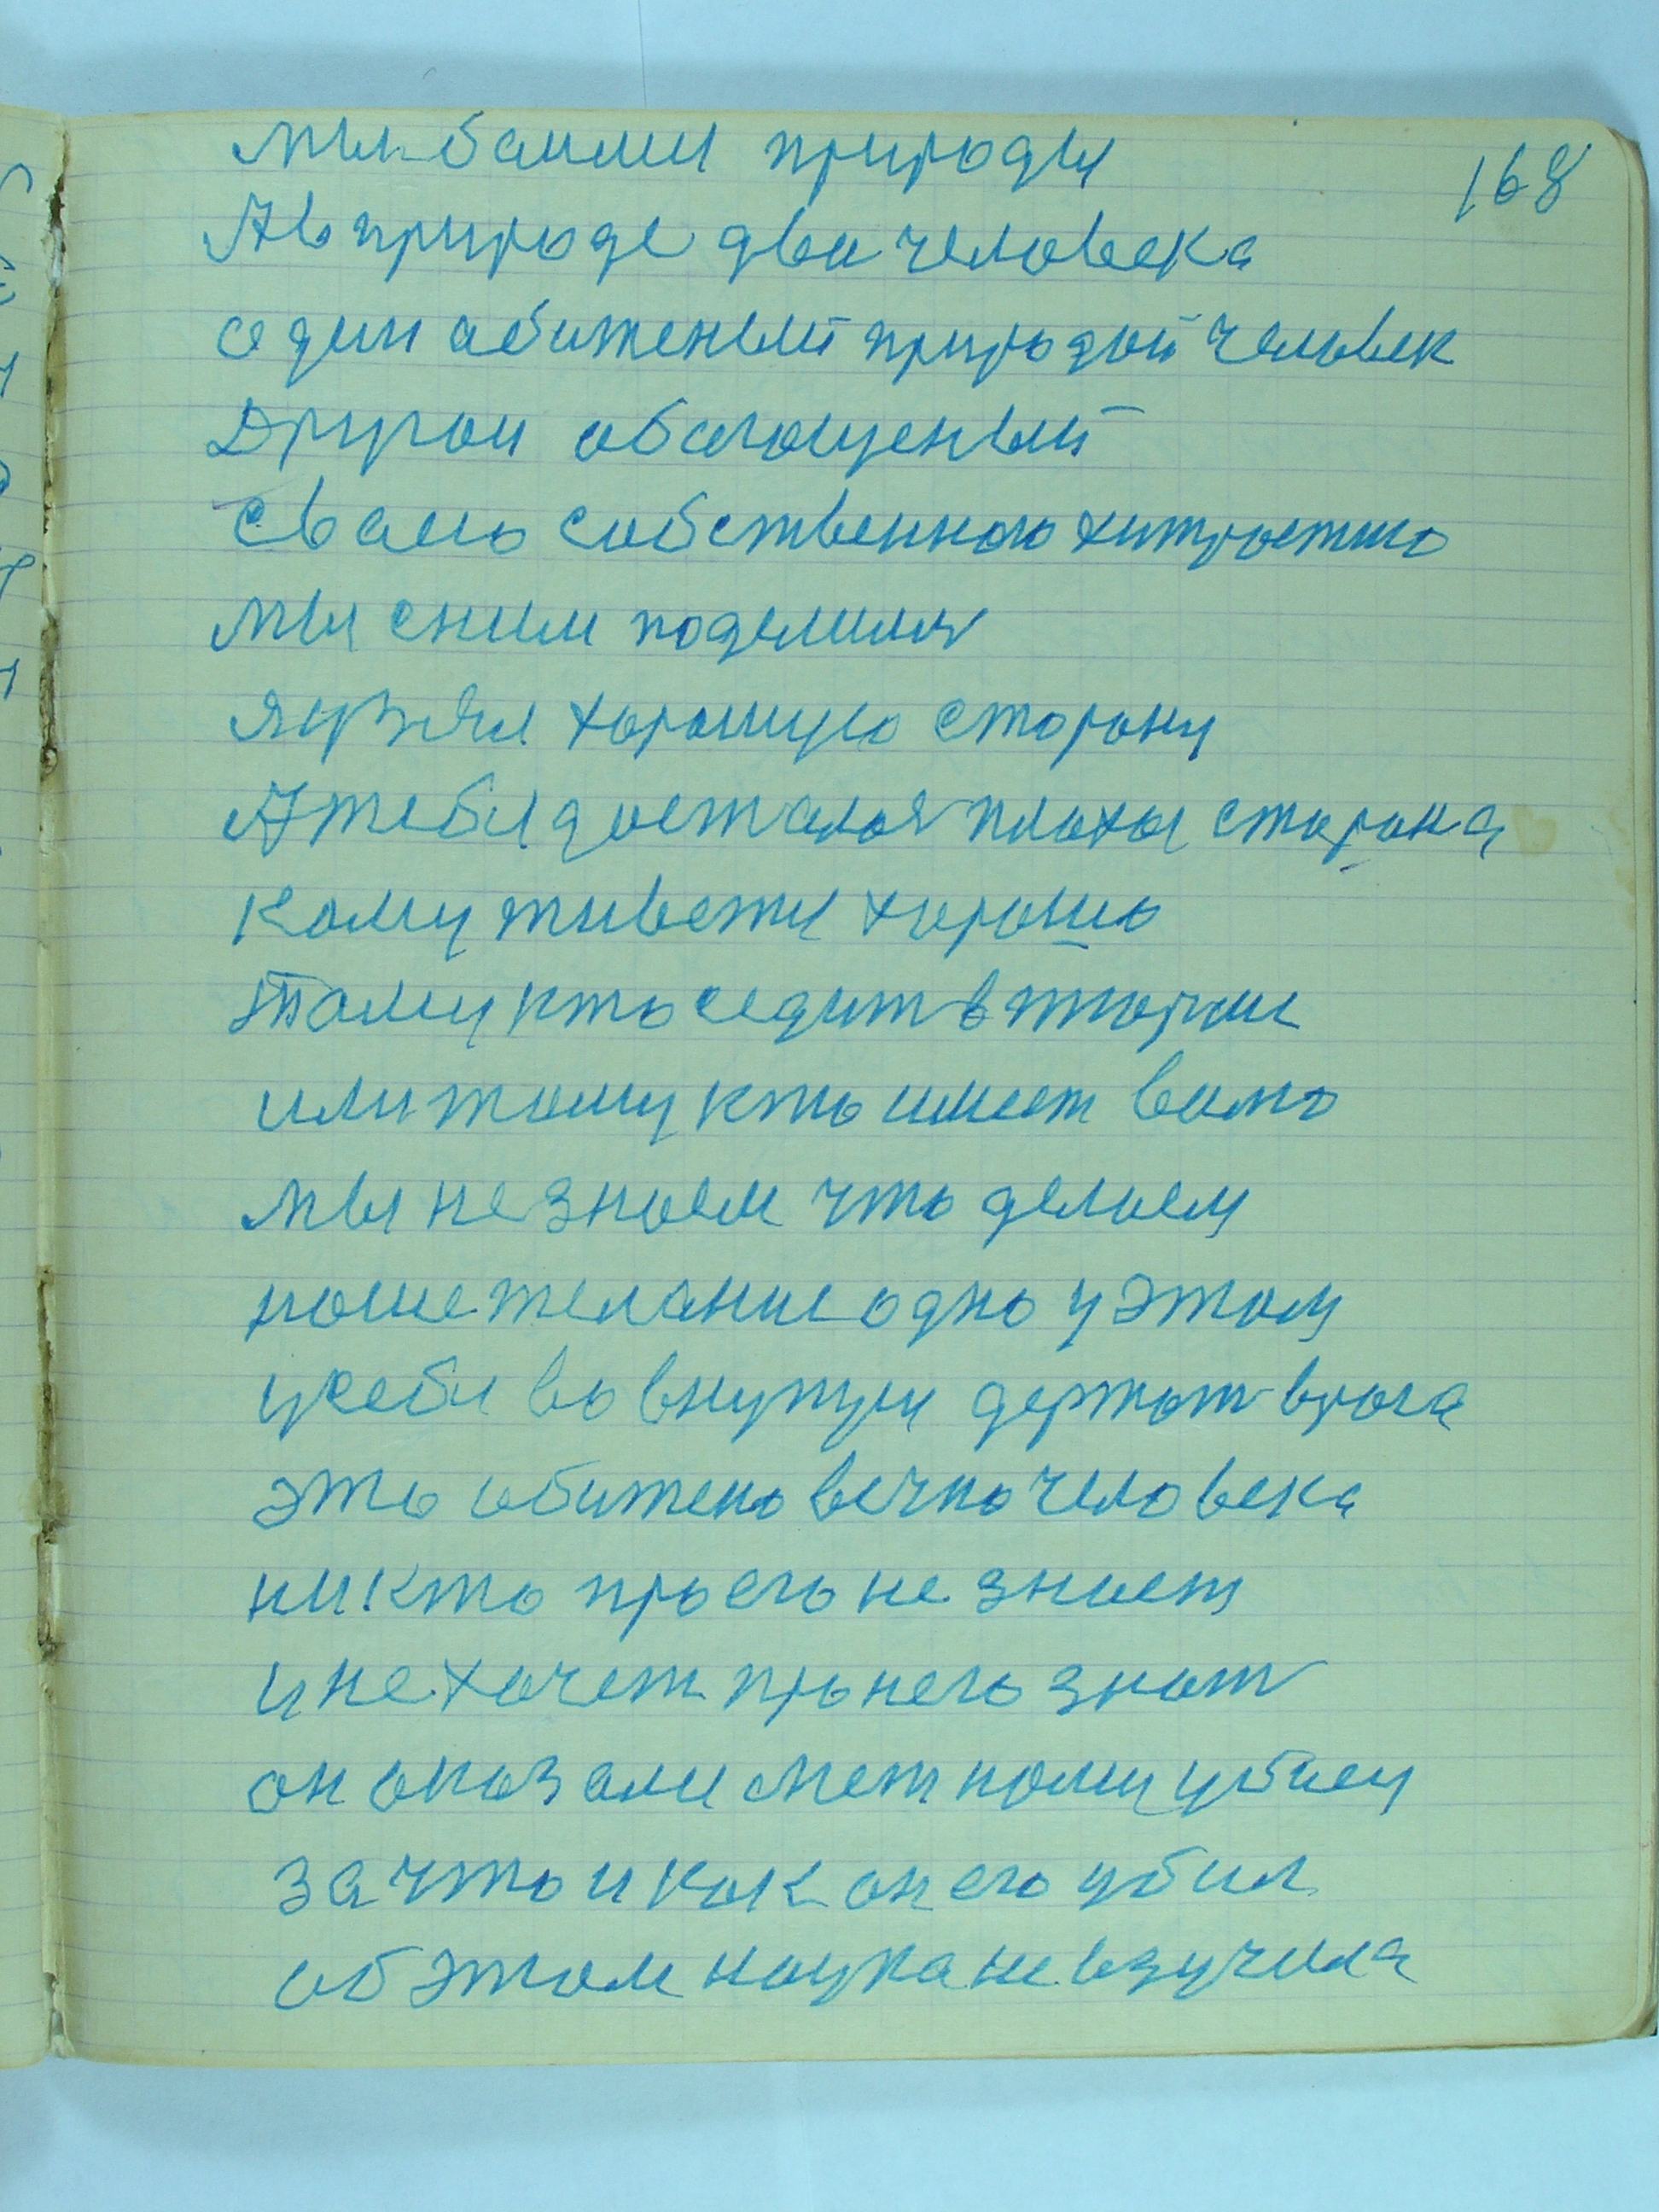 168
мы боими природы
А в природе два человека
один абиженый природой человек
Другои обагощеный
сваею собственною хитростию
мы сними поделимя
я узяли хорошую сторону
А тебя досталоя плохая сторона
кому живетя хорошо
Тому кто седит в тюрми
или тому кто имеет волю
мы не знаем что делаем
наше желание одно у этом
у себя во внутри держат врага
это обижено вечно человека
ни кто про его не знает
и не хочет про него знат
он оказали смет ному убиву
за что и как он его убил
об этом наука не взучила